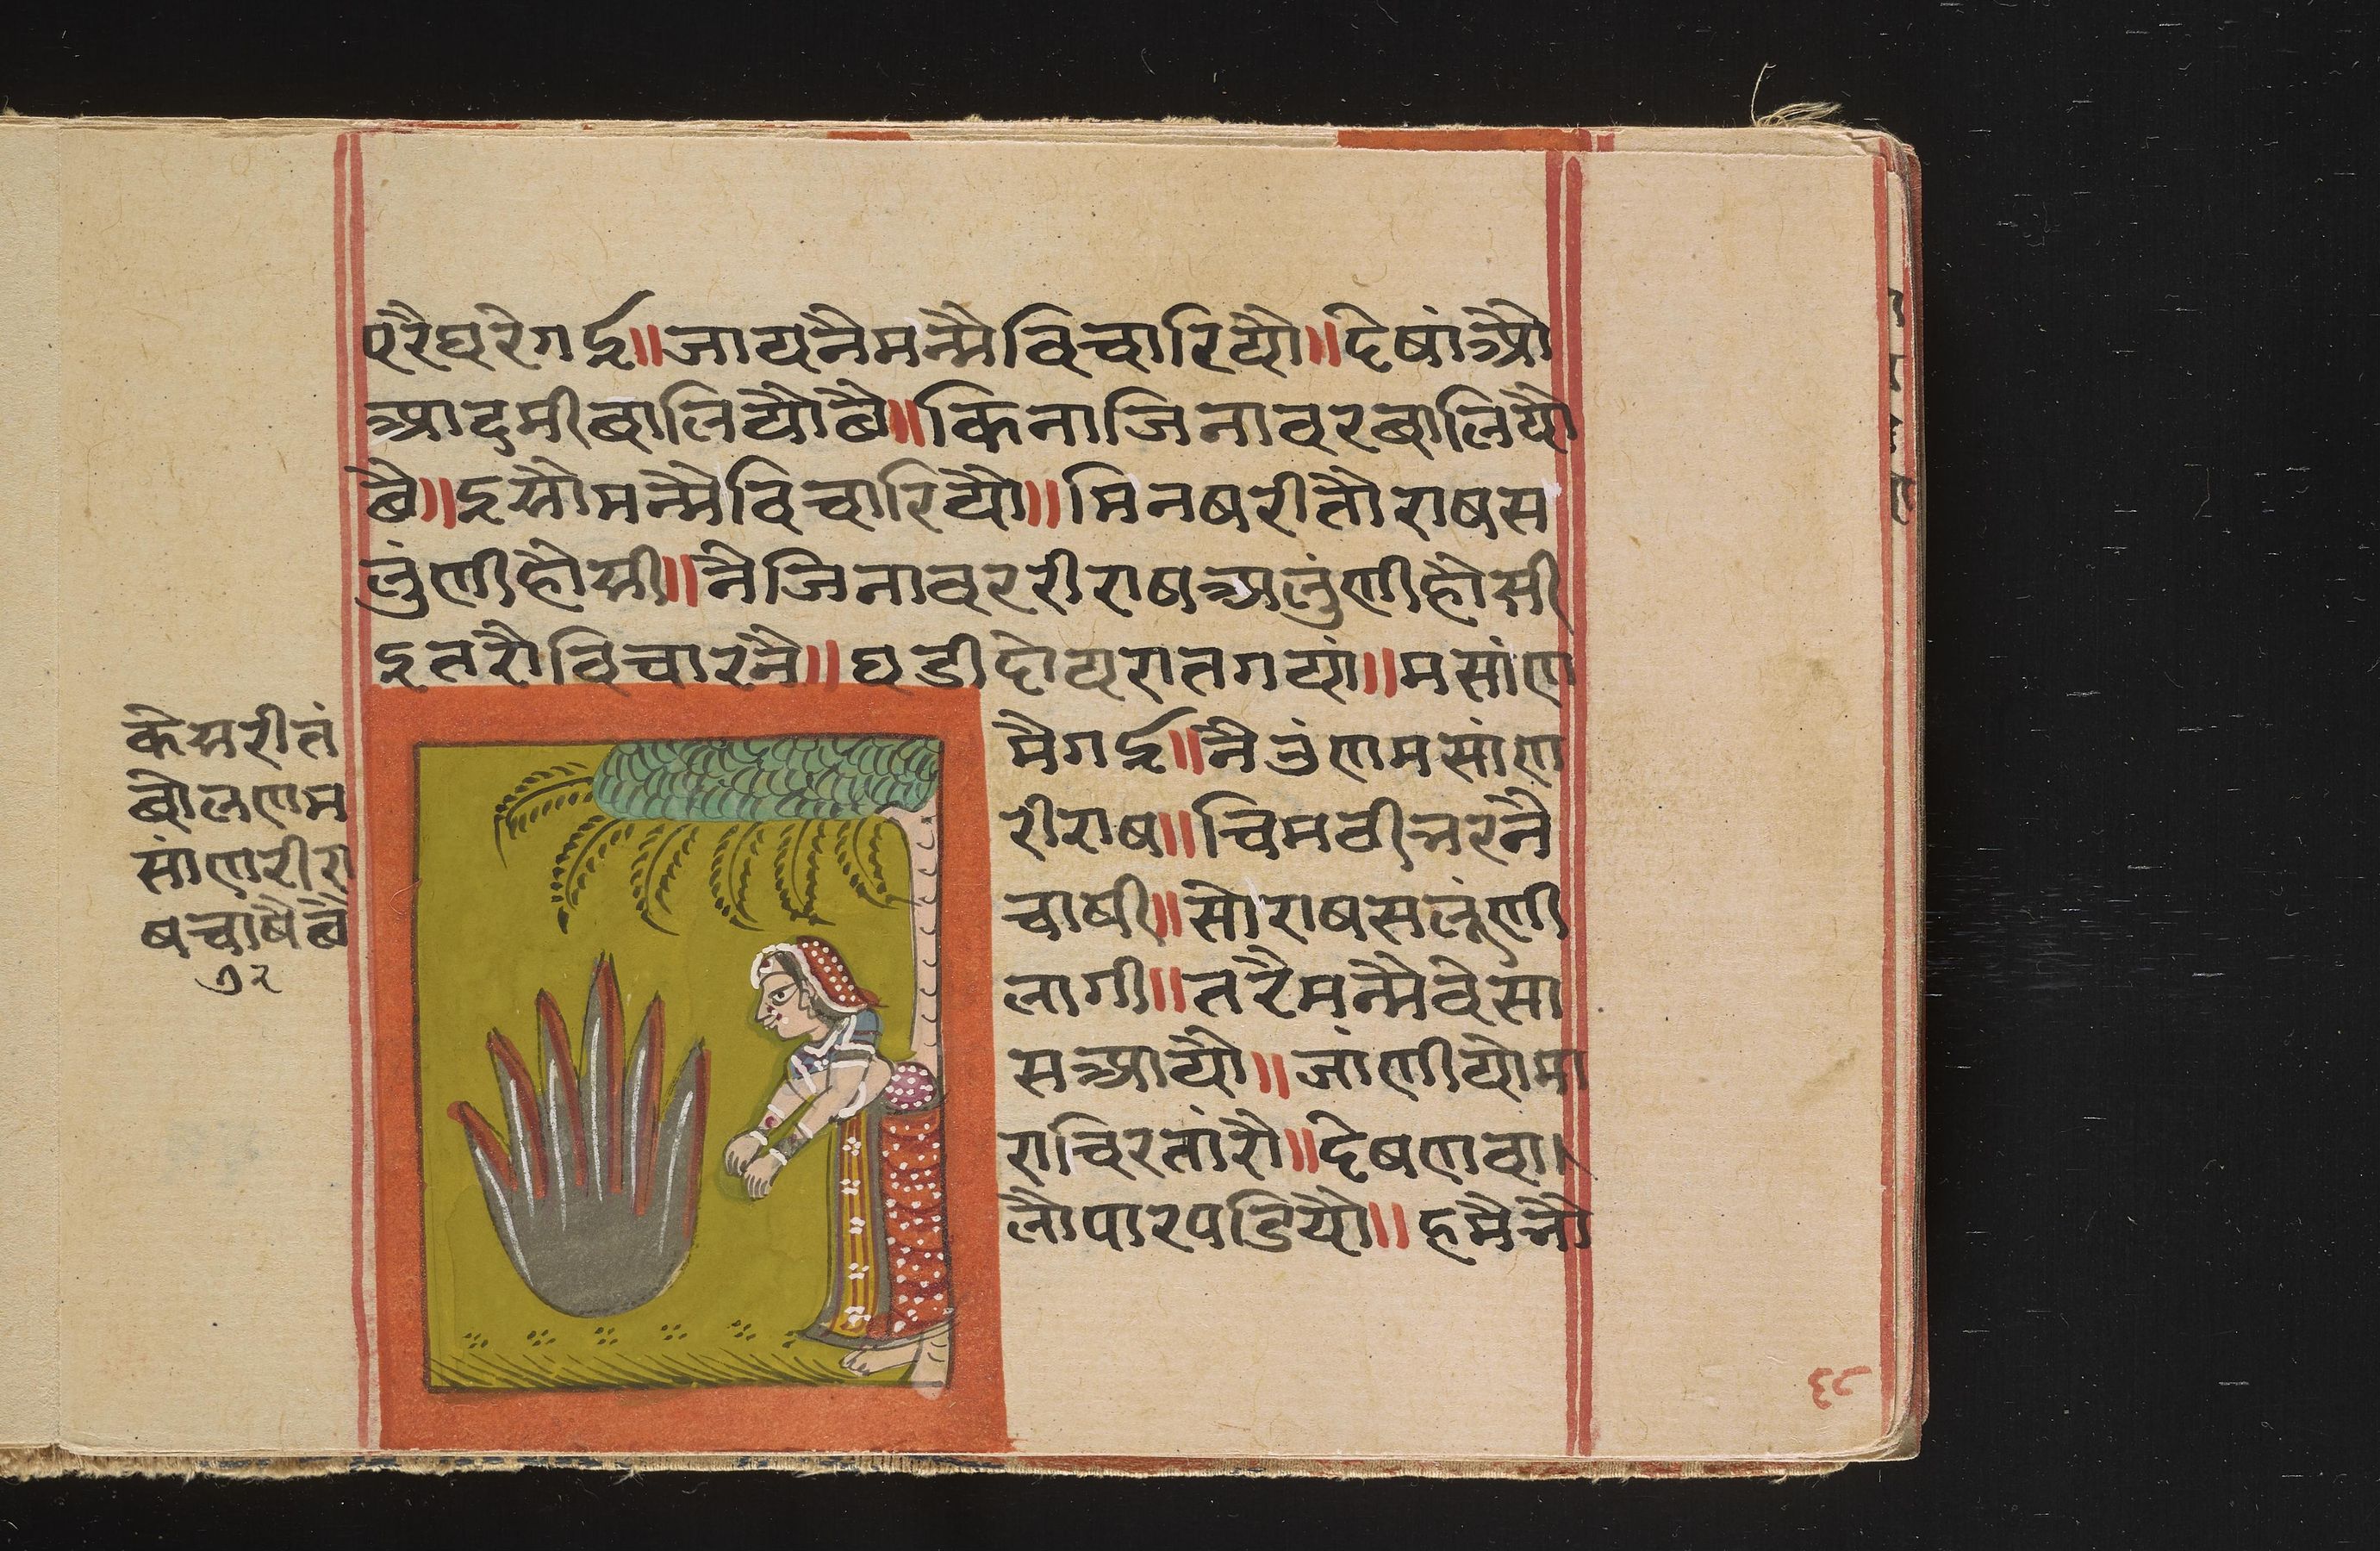 रैरैघरेगई॥जायनैमन्मैविचारियौ॥देषांओ
आदमीबालियौछै॥किनाजिनावरबालियौ
छै॥इसौमन्मैविचारियौ॥मिनषरीतौराषस
लुंणीहौसी॥नैजिनावररीराषअलुंणीहौसी
इतरौविचारनै॥घडीदोयरातगयां॥मसांण
मैगई॥नैउंणमसांण
रीराष॥चिमठीभरनै
चाषी॥सोराषसलूंणी
लागी॥तरैमन्मैवेसा
सआयौ॥जांणीयोमा
राचिरतांरौ॥देषणवा
लौपारपडियौ॥हमैभौ
केसरीतं
बोलणम
सांणरीरा
षचांषैछै
७२
६८